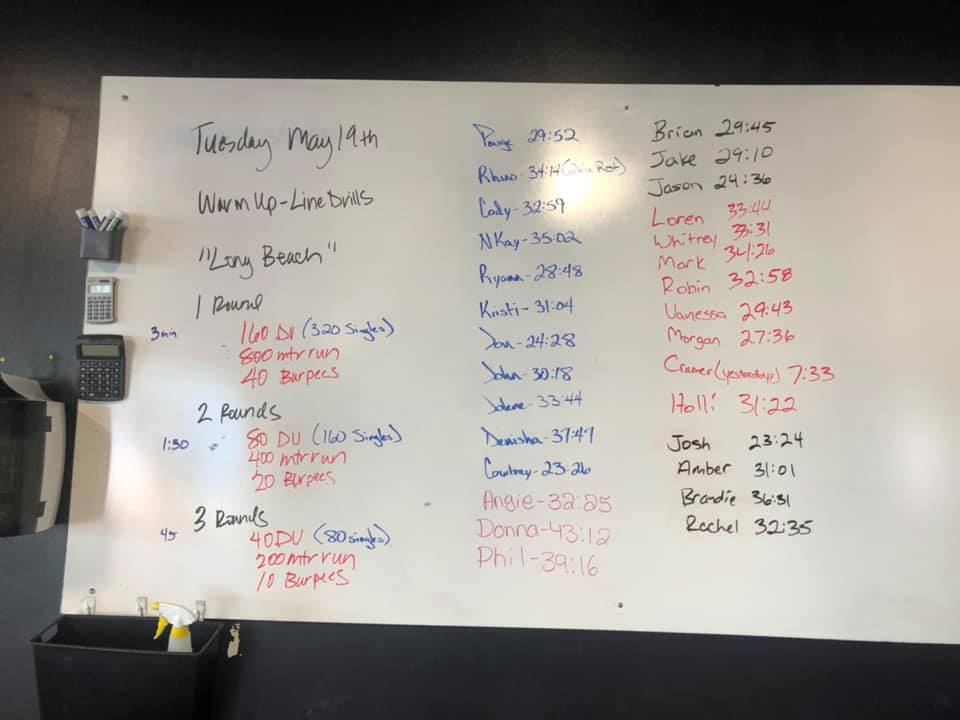 Tuesday May 19th
Warm Up - Line Drills
"Long Beach"
1 Round
3 min 160 DU (320 Singles)
800 mtr run
40 Burpees
2 Rounds
1:30 80 DU (160 Singles)
400 mtr run
20 Burpees
3 Rounds
45 40 DU (80 singles)
200 mtr run
10 Burpees
29:52
Rhino - 34:14 (2min Rest)
Cody - 32:59
NKay - 35:02
Ryann - 28:48
Kristi - 31:04
Jon - 24:28
John - 30:18
Jolene - 33:44
Denisha - 37:47
Courtney - 23:26
Angie - 32:25
Donna - 43:12
Phil - 39:16
Brian 29:45
Jake 29:10
Jason 24:36
Loren 33:44
Whitney 33:31
Mark 34:26
Robin 32:58
Vanessa 29:43
Morgan 27:36
Cramer (yesterday) 7:33
Holli 31:22
Josh 23:24
Amber 31:01
Brandie 36:31
Rachel 32:35